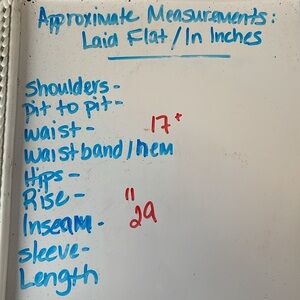 Approximate Measurements:
Laid Flat/In Inches
Shoulders-
Pit to pit-
Waist- 17+
Waistband/hem
Hips-
Rise- 11
Inseam- 29
Sleeve-
Length